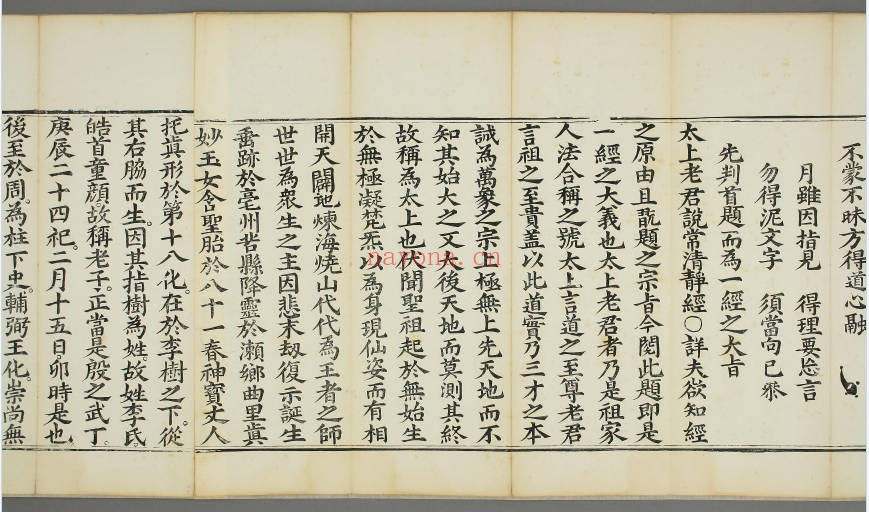 不蒙不昧方得道心融
月雖因指見　得理要忘言
勿得泥文字　須當句已叅
先判首題而為一經之大旨
太上老君說常清靜經〇詳夫欲知經
之原由且翫題之宗旨今閱此題即是
一經之大義也太上老君者乃是祖家
人法合稱之號太上言道之至尊老君
言祖之至貴盖以此道實乃三才之本
誠為萬象之宗上極無上先天地而不
知其始大之又大後天地而莫測其終
故稱為太上也伏聞聖祖起於無始生
於無極凝梵炁以為身現仙姿而有相
開天闢地煉海燒山代代為王者之師
世世為衆生之主因悲末刼復示誕生
垂跡於亳州苦縣降靈於瀨鄉曲里眞
妙玉女含聖胎於八十一春神寳丈人
托眞形於第十八化。在於李樹之下。從
其右脇而生。因其指樹為姓。故姓李氏。
皓首童顔。故稱老子。正當是殷之武丁。
庚辰二十四祀。二月十五日。卯時是也。
後至於周。為柱下史。輔弼王化。崇尚無
nayona.cn